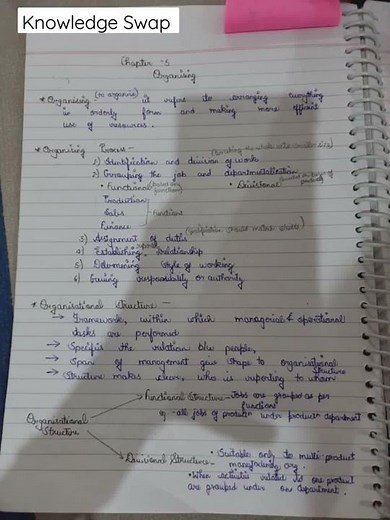 Knowledge Swap
Chapter - 5
Organising
* Organising (to organise) it refers to arranging everything
in orderly form and making more efficient
use of resources.
* Organising Process -
1) Identification and division of work
2) Grouping the job and departmentalisation
• Functional • Divisional
Production
Sales - Functions
Finance
3) Assignment of duties
4) Establishing relationship
5) Determining style of working
6) Giving responsibility or authority
* Organisational Structure -
→ Framework, within which managerial & operational
tasks are performed
→ Specifies the relation b/w people,
→ Span of management give shape to organisational structure
→ Structure makes clear, who is reporting to whom
Functional Structure - Jobs are grouped as per
functions
eg - all jobs of production under production department
Organisational
Structure
Divisional Structure - • Suitable only to multi-product
manufacturing org.
• When activities related to one product
are grouped under one department.